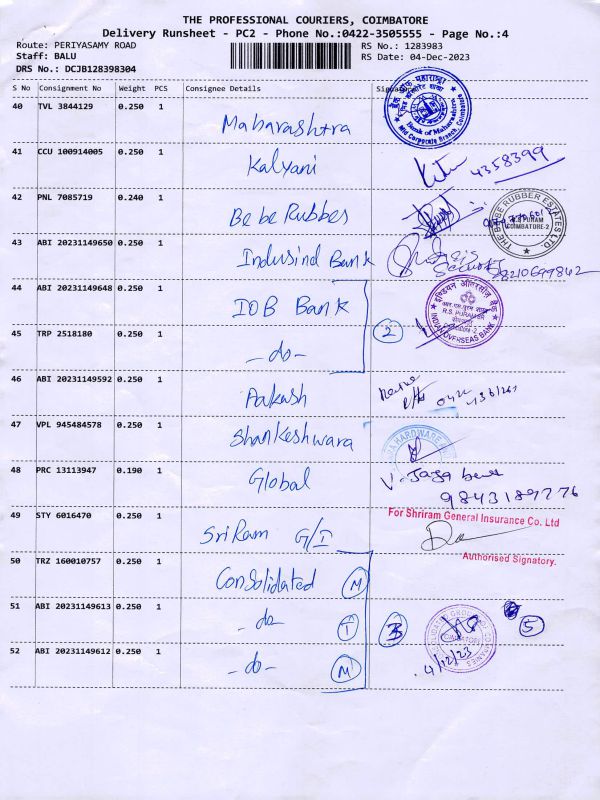 THE PROFESSIONAL COURIERS, COIMBATORE
Delivery Runsheet - PC2 - Phone No.:0422-3505555 - Page No.:4
Route: PERIYASAMY ROAD RS No.: 1283983
Staff: BALU RS Date: 04-Dec-2023
DRS No.: DCJB128398304
S No Consignment No Weight PCS Consignee Details
40 TVL 3844129 0.250 1 Maharashtra
Bank of Maharashtra
Mid Corporate Branch, Coimbatore
41 CCU 100914005 0.250 1 Kalyani
4358399
42 PNL 7085719 0.240 1 Be be Rubbes
THE BEBE RUBBER ESTATES LTD.
R.S. PURAM
COIMBATORE-2
43 ABI 20231149650 0.250 1 Indusind Bank
44 ABI 20231149648 0.250 1 IOB Bank
इण्डियन ओवरसीज़ बैंक
R.S. PURAM BR
INDIAN OVERSEAS BANK
45 TRP 2518180 0.250 1 -do- 2
46 ABI 20231149592 0.250 1 Aakash
0422
47 VPL 945484578 0.250 1 Shankeshwara
HARDWARE
48 PRC 13113947 0.190 1 Global
9843189776
49 STY 6016470 0.250 1 SriRam G/I
For Shriram General Insurance Co. Ltd
Authorised Signatory.
50 TRZ 160010757 0.250 1 Consolidated M
51 ABI 20231149613 0.250 1 -do- T 3 5
52 ABI 20231149612 0.250 1 -do- M
4/12/23